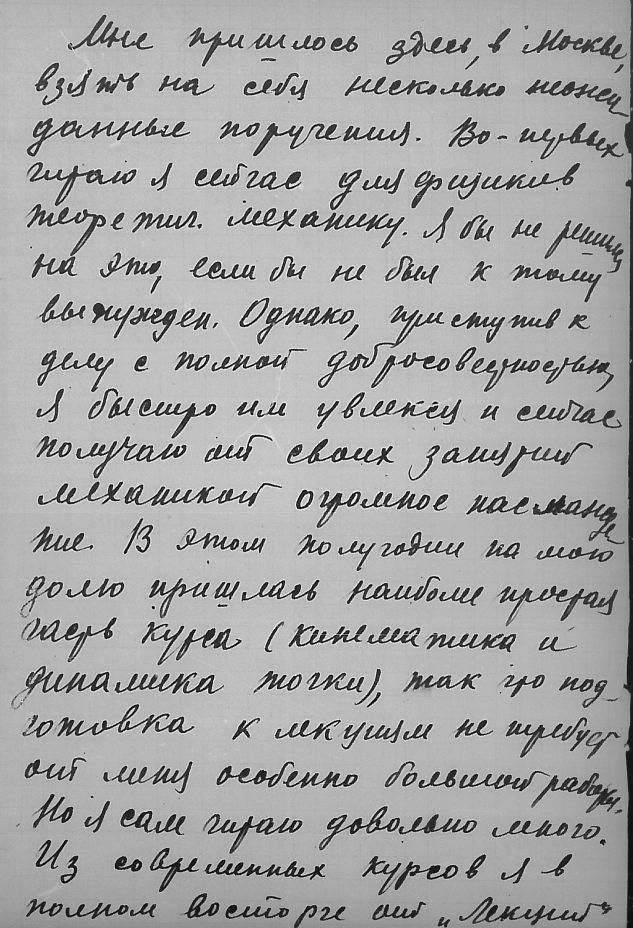 Мне пришлось здесь, в Москве,
взять на себя несколько неожи-
данные поручения. Во-первых
читаю я сейчас для физиков
теоретич. механику. Я бы не решился
на это, если бы не был к тому
вынужден. Однако, приступив к
делу с полной добросовестностью,
я быстро им увлекся и сейчас
получаю от своих занятий
механикой огромное наслажде-
ние. В этом полугодии на мою
долю пришлась наиболее простая
часть курса (кинематика и
динамика точки), так что под-
готовка к лекциям не требует
от меня особенно большой работы.
Но я сам читаю довольно много.
Из современных курсов я в
полном восторге от „Лекций"